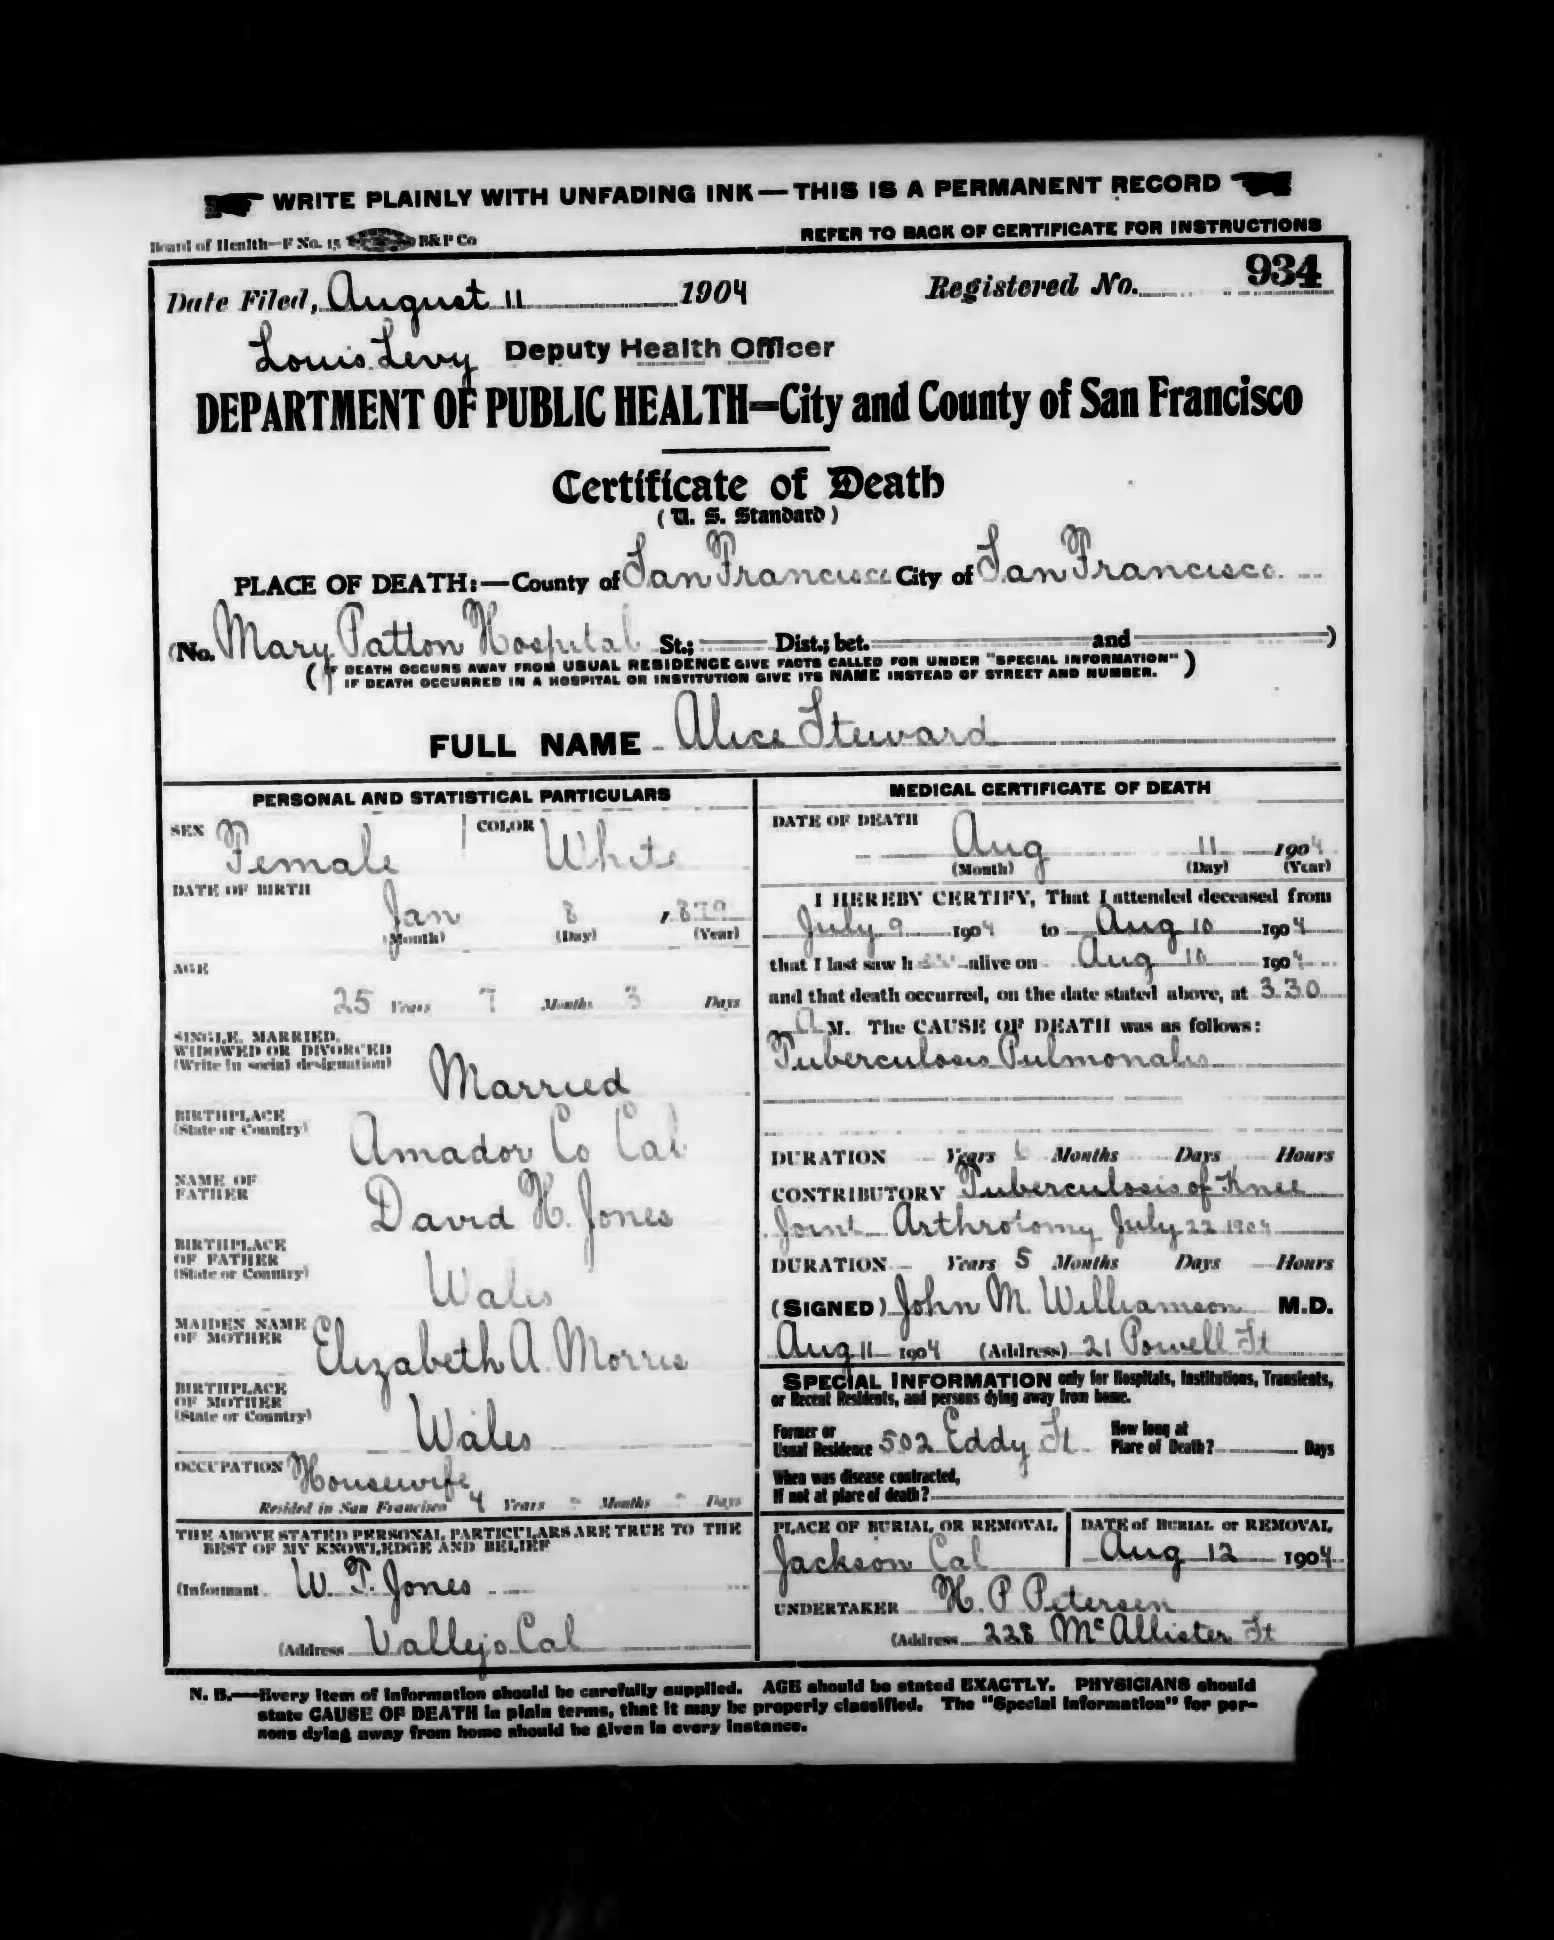 WRITE PLAINLY WITH UNFADING INK—THIS IS A PERMANENT RECORD
Board of Health—F No. 15 B&P Co
REFER TO BACK OF CERTIFICATE FOR INSTRUCTIONS
Date Filed, August 11 1904 Registered No. 934
Louis Levy Deputy Health Officer
DEPARTMENT OF PUBLIC HEALTH—City and County of San Francisco
Certificate of Death
(U. S. Standard)
PLACE OF DEATH:—County of San Francisco City of San Francisco
(No. Mary Patton Hospital St.; Dist.; bet. and )
(IF DEATH OCCURS AWAY FROM USUAL RESIDENCE GIVE FACTS CALLED FOR UNDER "SPECIAL INFORMATION"
IF DEATH OCCURRED IN A HOSPITAL OR INSTITUTION GIVE ITS NAME INSTEAD OF STREET AND NUMBER.)
FULL NAME Alice Steward
PERSONAL AND STATISTICAL PARTICULARS
SEX Female COLOR White
DATE OF BIRTH
Jan 8 1879
(Month) (Day) (Year)
AGE
25 Years 7 Months 3 Days
SINGLE, MARRIED,
WIDOWED OR DIVORCED
(Write in social designation)
Married
BIRTHPLACE
(State or Country)
Amador Co Cal
NAME OF
FATHER
David H. Jones
BIRTHPLACE
OF FATHER
(State or Country)
Wales
MAIDEN NAME
OF MOTHER
Elizabeth A. Morris
BIRTHPLACE
OF MOTHER
(State or Country)
Wales
OCCUPATION Housewife
Resided in San Francisco 4 Years - Months - Days
THE ABOVE STATED PERSONAL PARTICULARS ARE TRUE TO THE
BEST OF MY KNOWLEDGE AND BELIEF
(Informant W. T. Jones
(Address Vallejo Cal
MEDICAL CERTIFICATE OF DEATH
DATE OF DEATH
Aug 11 1904
(Month) (Day) (Year)
I HEREBY CERTIFY, That I attended deceased from
July 9 1904 to Aug 10 1904
that I last saw h alive on Aug 10 1904
and that death occurred, on the date stated above, at 3.30
A M. The CAUSE OF DEATH was as follows:
Tuberculosis Pulmonalis
DURATION Years 6 Months Days Hours
CONTRIBUTORY Tuberculosis of Knee
Joint Arthrotomy July 22 1904
DURATION Years 5 Months Days Hours
(SIGNED) John M. Williamson M.D.
Aug 11 1904 (Address) 21 Powell St
SPECIAL INFORMATION only for Hospitals, Institutions, Transients,
or Recent Residents, and persons dying away from home.
Former or
Usual Residence 502 Eddy St
How long at
Place of Death? Days
When was disease contracted,
If not at place of death?
PLACE OF BURIAL OR REMOVAL
Jackson Cal
DATE of BURIAL or REMOVAL
Aug 12 1904
UNDERTAKER H. P Petersen
(Address 228 McAllister St
N. B.—Every item of information should be carefully supplied. AGE should be stated EXACTLY. PHYSICIANS should
state CAUSE OF DEATH in plain terms, that it may be properly classified. The "Special Information" for per-
sons dying away from home should be given in every instance.